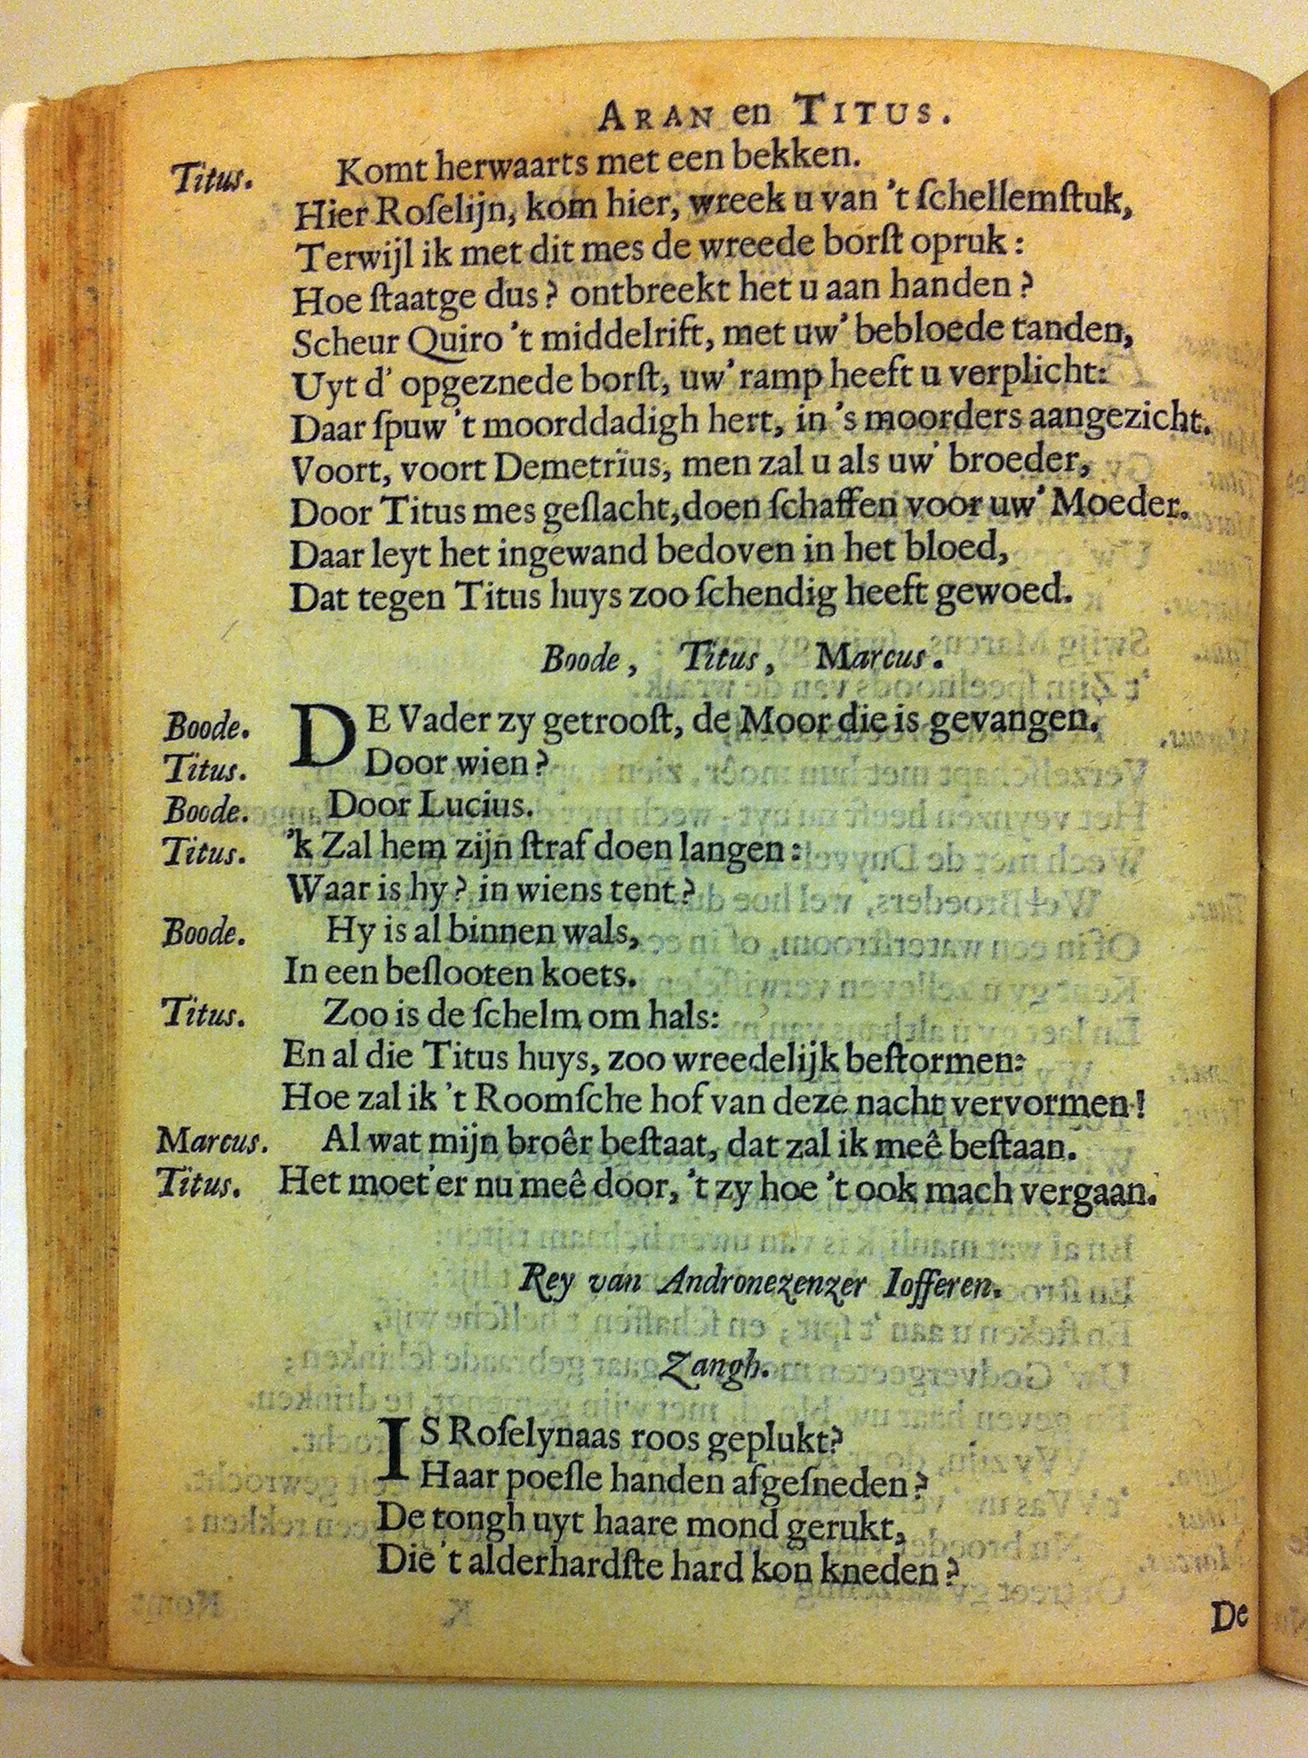 ARAN en TITUS.
Titus. Komt herwaarts met een bekken.
Hier Roſelijn, kom hier, wreek u van 't ſchellemſtuk,
Terwijl ik met dit mes de wreede borſt opruk :
Hoe ſtaatge dus? ontbreekt het u aan handen ?
Scheur Quiro 't middelrift, met uw' bebloede tanden,
Uyt d' opgeznede borſt, uw' ramp heeft u verplicht:
Daar ſpuw 't moorddadigh hert, in 's moorders aangezicht.
Voort, voort Demetrius, men zal u als uw' broeder,
Door Titus mes geſlacht, doen ſchaffen voor uw' Moeder.
Daar leyt het ingewand bedoven in het bloed,
Dat tegen Titus huys zoo ſchendig heeft gewoed.
Boode, Titus, Marcus.
Boode. DE Vader zy getrooſt, de Moor die is gevangen.
Titus. Door wien?
Boode. Door Lucius.
Titus. 'k Zal hem zijn ſtraf doen langen :
Waar is hy? in wiens tent?
Boode. Hy is al binnen wals,
In een beſlooten koets.
Titus. Zoo is de ſchelm om hals:
En al die Titus huys, zoo wreedelijk beſtormen:
Hoe zal ik 't Roomſche hof van deze nacht vervormen!
Marcus. Al wat mijn broêr beſtaat, dat zal ik meê beſtaan.
Titus. Het moet'er nu meê door, 't zy hoe 't ook mach vergaan.
Rey van Andronezenzer Iofferen.
Zangh.
IS Roſelynaas roos geplukt?
Haar poeſle handen afgeſneden?
De tongh uyt haare mond gerukt,
Die 't alderhardſte hard kon kneden?
De